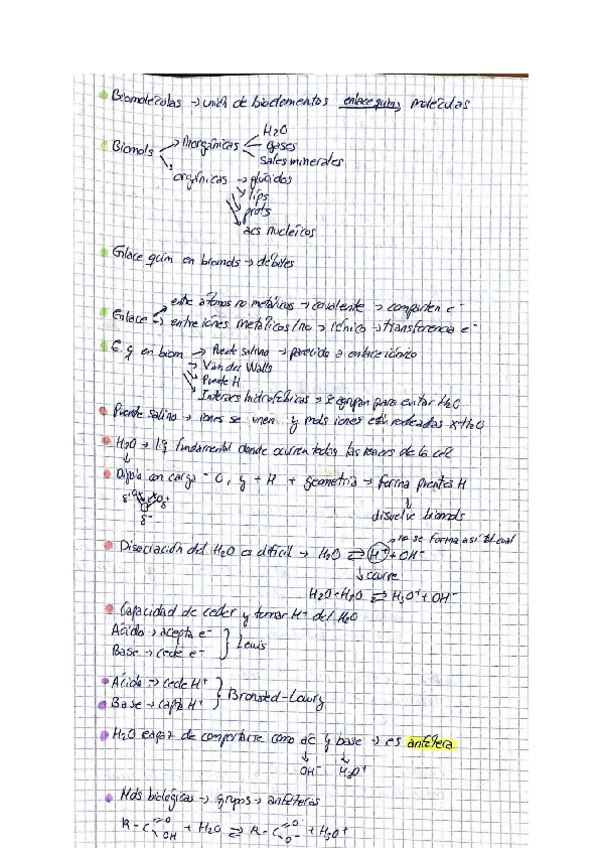 Biomoléculas → unión de bioelementos enlace quím, moléculas
H2O
Biomols → Inorgánicas gases
sales minerales
orgánicas → glúcidos
lips
prots
acs nucleicos
Enlace quím en biomols → débiles
entre átomos no metálicos → covalente → comparten e-
Enlace → entre iones metálicos/no → iónico → transferencia e-
E.q en biom → Puente salino → parecido a enlace iónico
→ Van der Walls
Puente H
Interacs hidrofóbicas → se agrupan para evitar H2O
Puente salino → iones se unen y mols iones están rodeadas x H2O
H2O → líq fundamental donde ocurren todas las reaccs de la cél
Dipolo con carga - O, y + H + geometría → forma puentes H
δ+ δ+
δ-
disuelve biomols
no se forma así tal cual
Disociación del H2O es difícil → H2O ⇌ H+ + OH-
↓ ocurre
H2O + H2O ⇌ H3O+ + OH-
Capacidad de ceder y tomar H+ del H2O
Ácido → acepta e-
Base → cede e- } Lewis
Ácido → cede H+
Base → capta H+ } Bronsted-Lowry
H2O capaz de comportarse como ác y base → es anfótera
OH- H3O+
Mols biológicas → grupos → anfóteros
R-C =O OH + H2O ⇌ R-C =O O- + H3O+